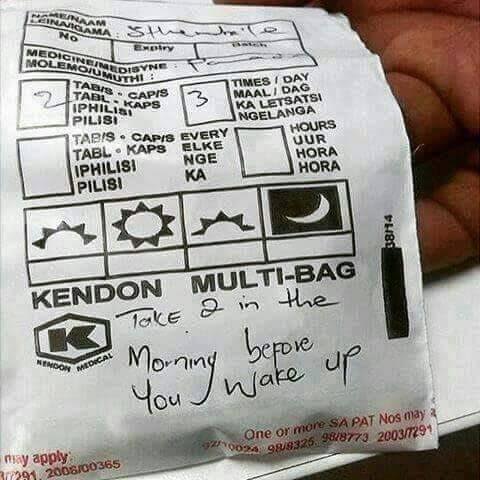 NAME/NAAM
LEINA/IGAMA : Sthembile
No Expiry Batch
MEDICINE/MEDISYNE :
MOLEMO/UMUTHI :
2 TAB/S • CAP/S 3 TIMES / DAY
TABL • KAPS MAAL / DAG
IPHILISI KA LETSATSI
PILISI NGELANGA
TAB/S • CAP/S EVERY HOURS
TABL • KAPS ELKE UUR
IPHILISI NGE HORA
PILISI KA HORA
KENDON MULTI-BAG
08/14
K
KENDON MEDICAL
Take 2 in the
Morning before
You Wake up
One or more SA PAT Nos may
92/10024 98/8325 98/8773 2003/7291
may apply:
2006/00365